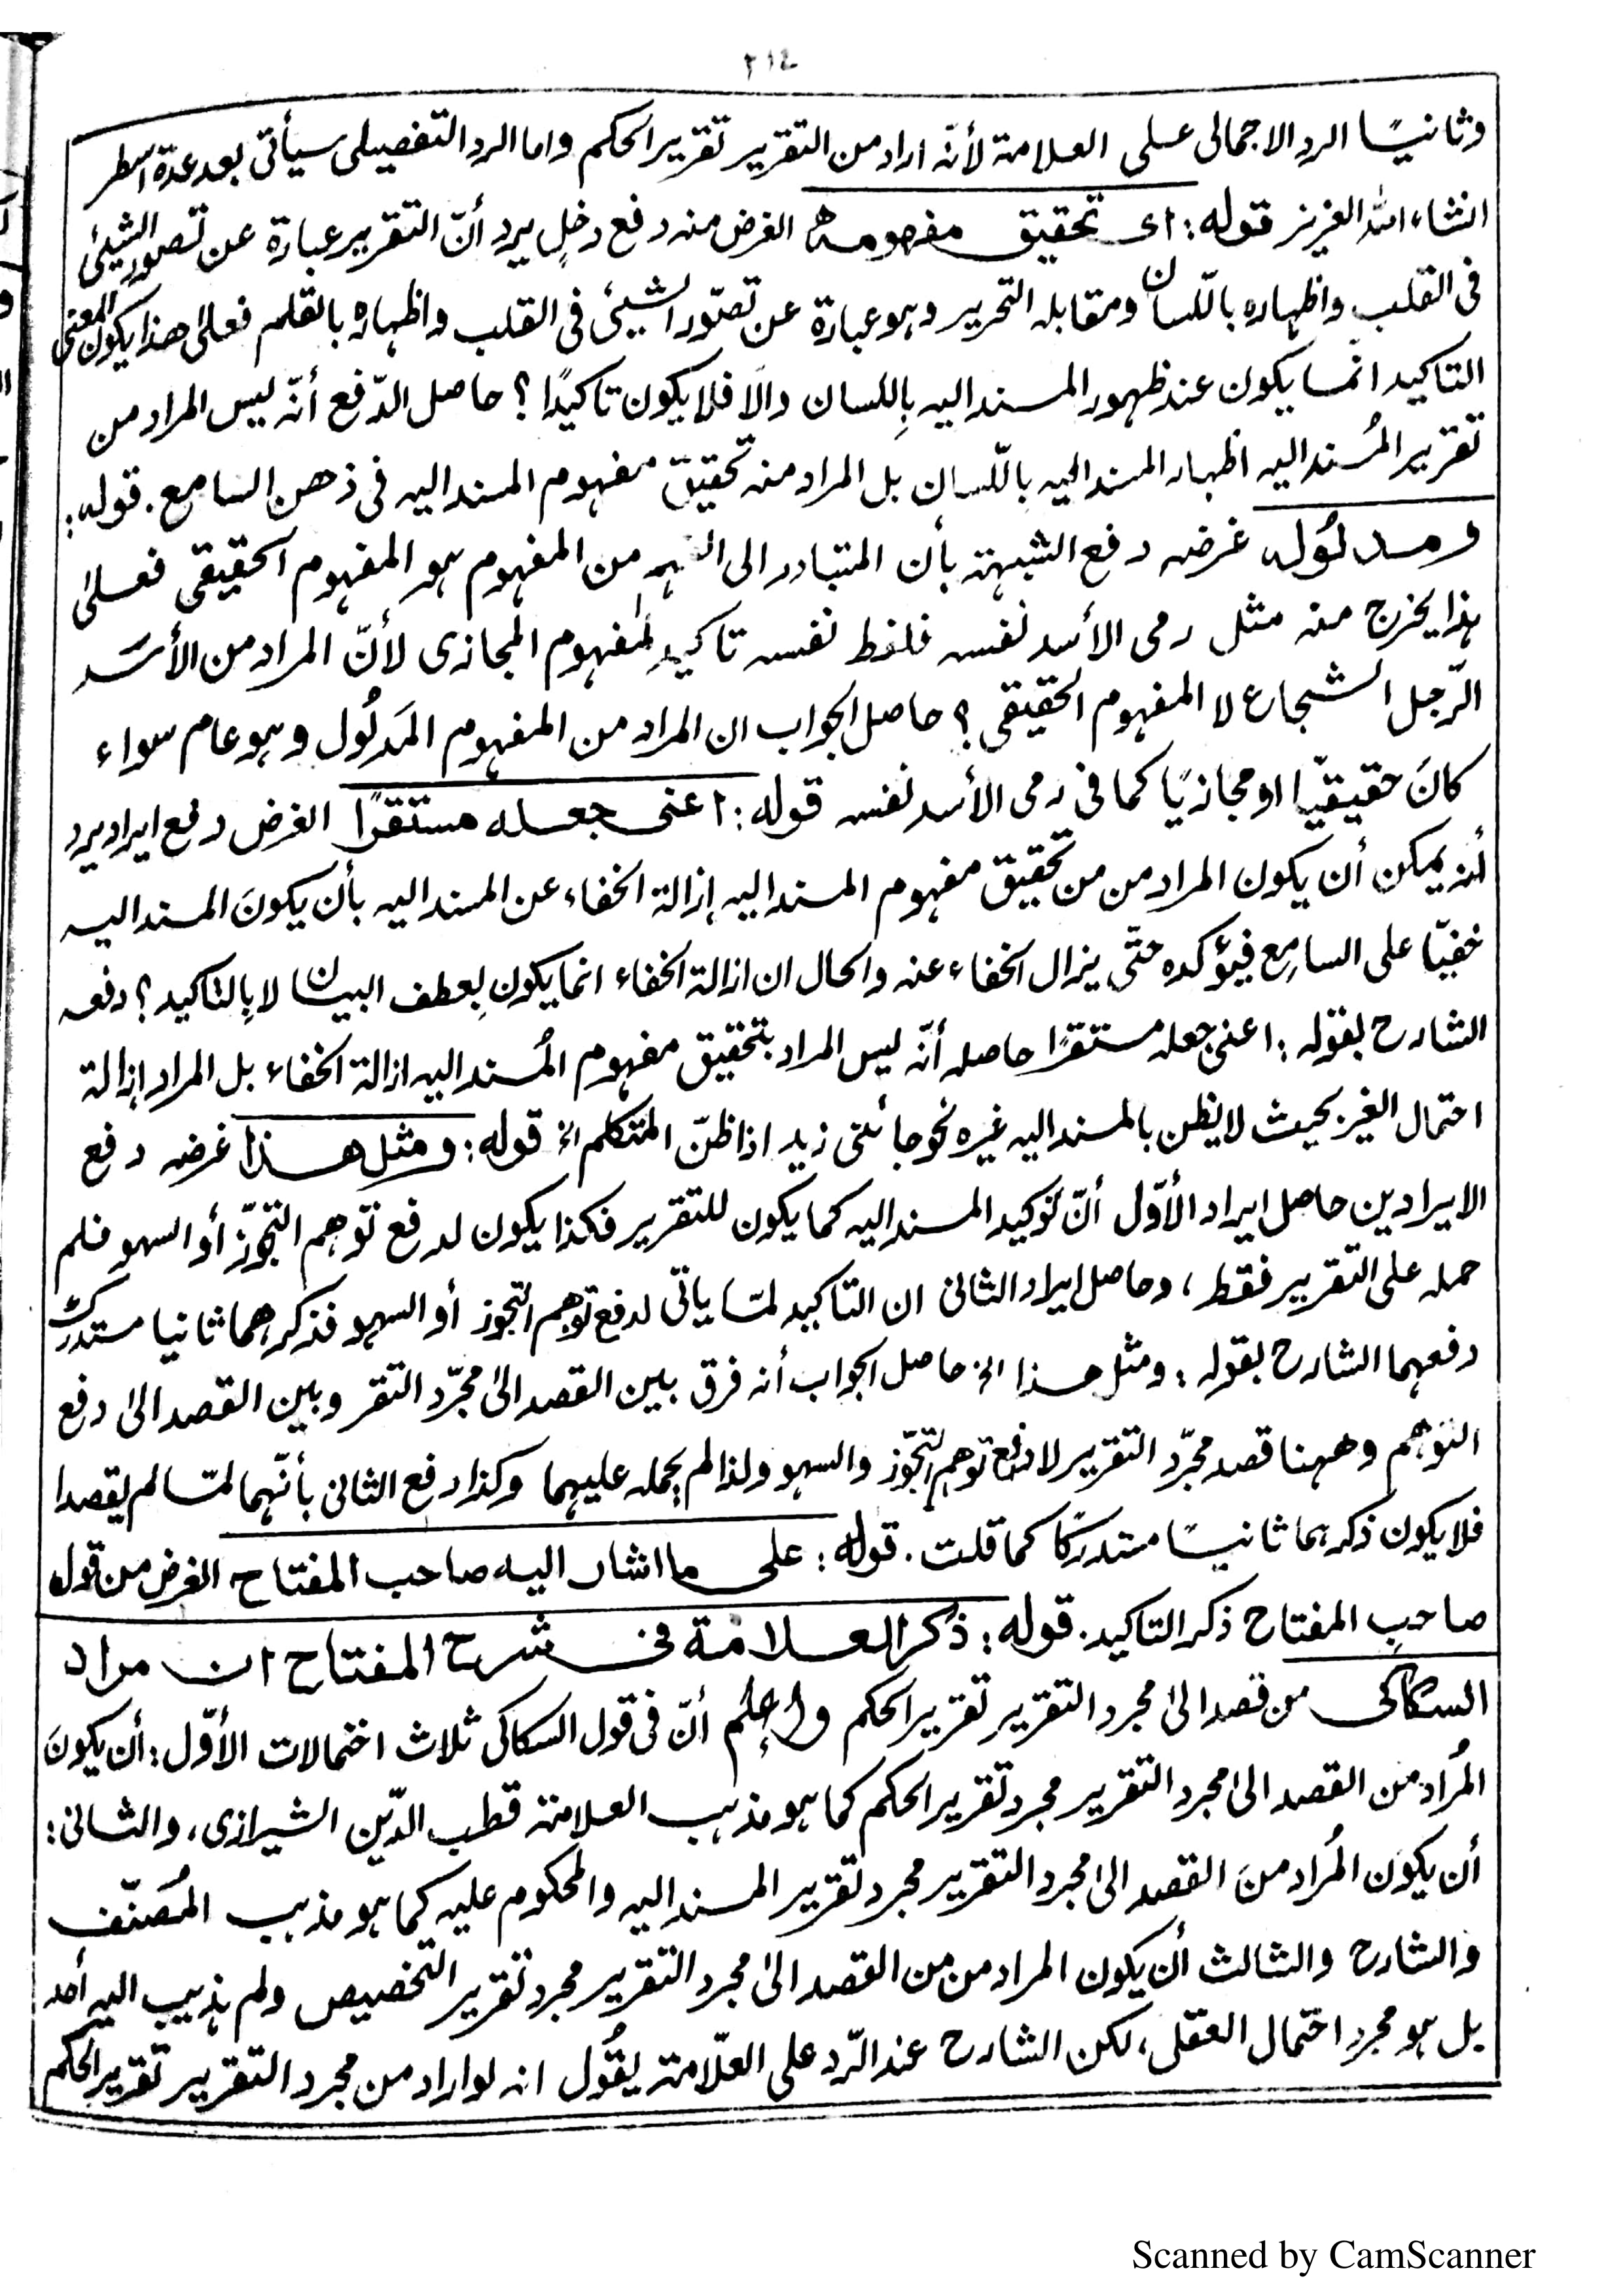 ٢١٤
وثانيًا الرد الاجمالى على العلامة لأنّه اراد من التقرير تقرير الحكم واما الرد التفصيلى سيأتى بعد عدة اسطر
انشاء الله العزيز قوله: اى تحقيق مفهومه الغرض منه دفع دخلٍ يرد أنّ التقرير عبارة عن تصور الشيئ
فى القلب واظهاره باللّسان ومقابله التحرير وهو عبارة عن تصوّر الشيئ فى القلب واظهاره بالقلم فعلىٰ هذا يكون المعنى
التاكيد انّما يكون عند ظهور المسند اليه بِاللسان والّا فلا يكون تاكيدًا ؟ حاصل الدّفع أنّه ليس المراد من
تقرير المُسند اليه اظهار المسند اليه باللّسان بل المراد منه تحقيق مفهوم المسند اليه فى ذهن السامع. قوله:
ومدلُوله غرضه دفع الشبهة بأن المتبادر الى الفهم من المفهوم هو المفهوم الحقيقى فعلىٰ
هذا يخرج منه مثل رمى الأسد نفسه فلفظ نفسه تاكيد لمفهوم المجازى لأنّ المراد من الأسَد
الرّجل الشجاع لا المفهوم الحقيقى ؟ حاصل الجواب ان المراد من المفهوم المَدلُول وهو عام سواء
كانَ حقيقيّا او مجازيًا كما فى رمى الأسد نفسه قوله: اعنى جعله مستقرًا الغرض دفع ايراد يرد
أنه يمكن أن يكون المراد من من تحقيق مفهوم المسند اليه إزالة الخفاء عن المسند اليه بأن يكونَ المسند اليه
خفيّا على السامِع فيؤكده حتّى يزال الخفاء عنه والحال ان ازالة الخفاء انما يكون بِعطف البيان لا بِالتاكيد ؟ دفعه
الشارح بقوله: اعنى جعله مستقرًا حاصله أنّه ليس المراد بتحقيق مفهوم المُسند اليه ازالة الخفاء بل المراد إزالة
احتمال الغير بحيث لا يظن بالمسند اليه غيره نحو جائنى زيد اذا ظنّ المتكلم الخ قوله: ومثل هذا غرضه دفع
الايرادين حاصل ايراد الأوّل أنّ تَوكيد المسند اليه كما يكون للتقرير فكذا يكون لدفع توهم التجوّز أو السهو فلم
حمله على التقرير فقط، وحاصل ايراد الثانى ان التاكيد لمّا ياتى لدفع توهم التجوز أو السهو فذكرهما ثانيا مستدرك
دفعهما الشارح بقوله: ومثل هذا الخ حاصل الجواب أنه فرق بين القصد الىٰ مجرّد التقر وبين القصد الىٰ دفع
التوهم وههنا قصد مجرّد التقرير لا دفع توهم التجوّز والسهو ولذا لم يحمله عليهما وكذا دفع الثانى بأنّهما لمّا لم يقصدا
فلا يكون ذكرهما ثانيًا مستدركًا كما قلت. قوله: على ما اشار اليه صاحب المفتاح الغرض من قول
صاحبِ المفتاح ذكر التاكيد. قوله: ذكر العلامة فى شرح المفتاح ان مراد
السكاكى من قصد الىٰ مجرد التقرير تقرير الحكم واعلم أنّ فى قول السكاكى ثلاث احتمالات الأوّل: أن يكونَ
المُراد من القصد الىٰ مجرد التقرير مجرد تقرير الحكم كما هو مذهب العلامة قطب الدّين الشيرازى، والثانى:
أن يكون المُراد منَ القصد الىٰ مجرد التقرير مجرد تقرير المسند اليه والمحكوم عليه كما هو مذهب المُصنّف
والشارح والثالث أن يكون المراد من من القصد الىٰ مجرد التقرير مجرد تقرير التخصيص ولم يذهب اليه أحد
بل هو مجرد احتمال العقلى، لكن الشارح عند الرّد على العلّامة يقُول انه لو اراد من مجرد التقرير تقرير الحكم
Scanned by CamScanner